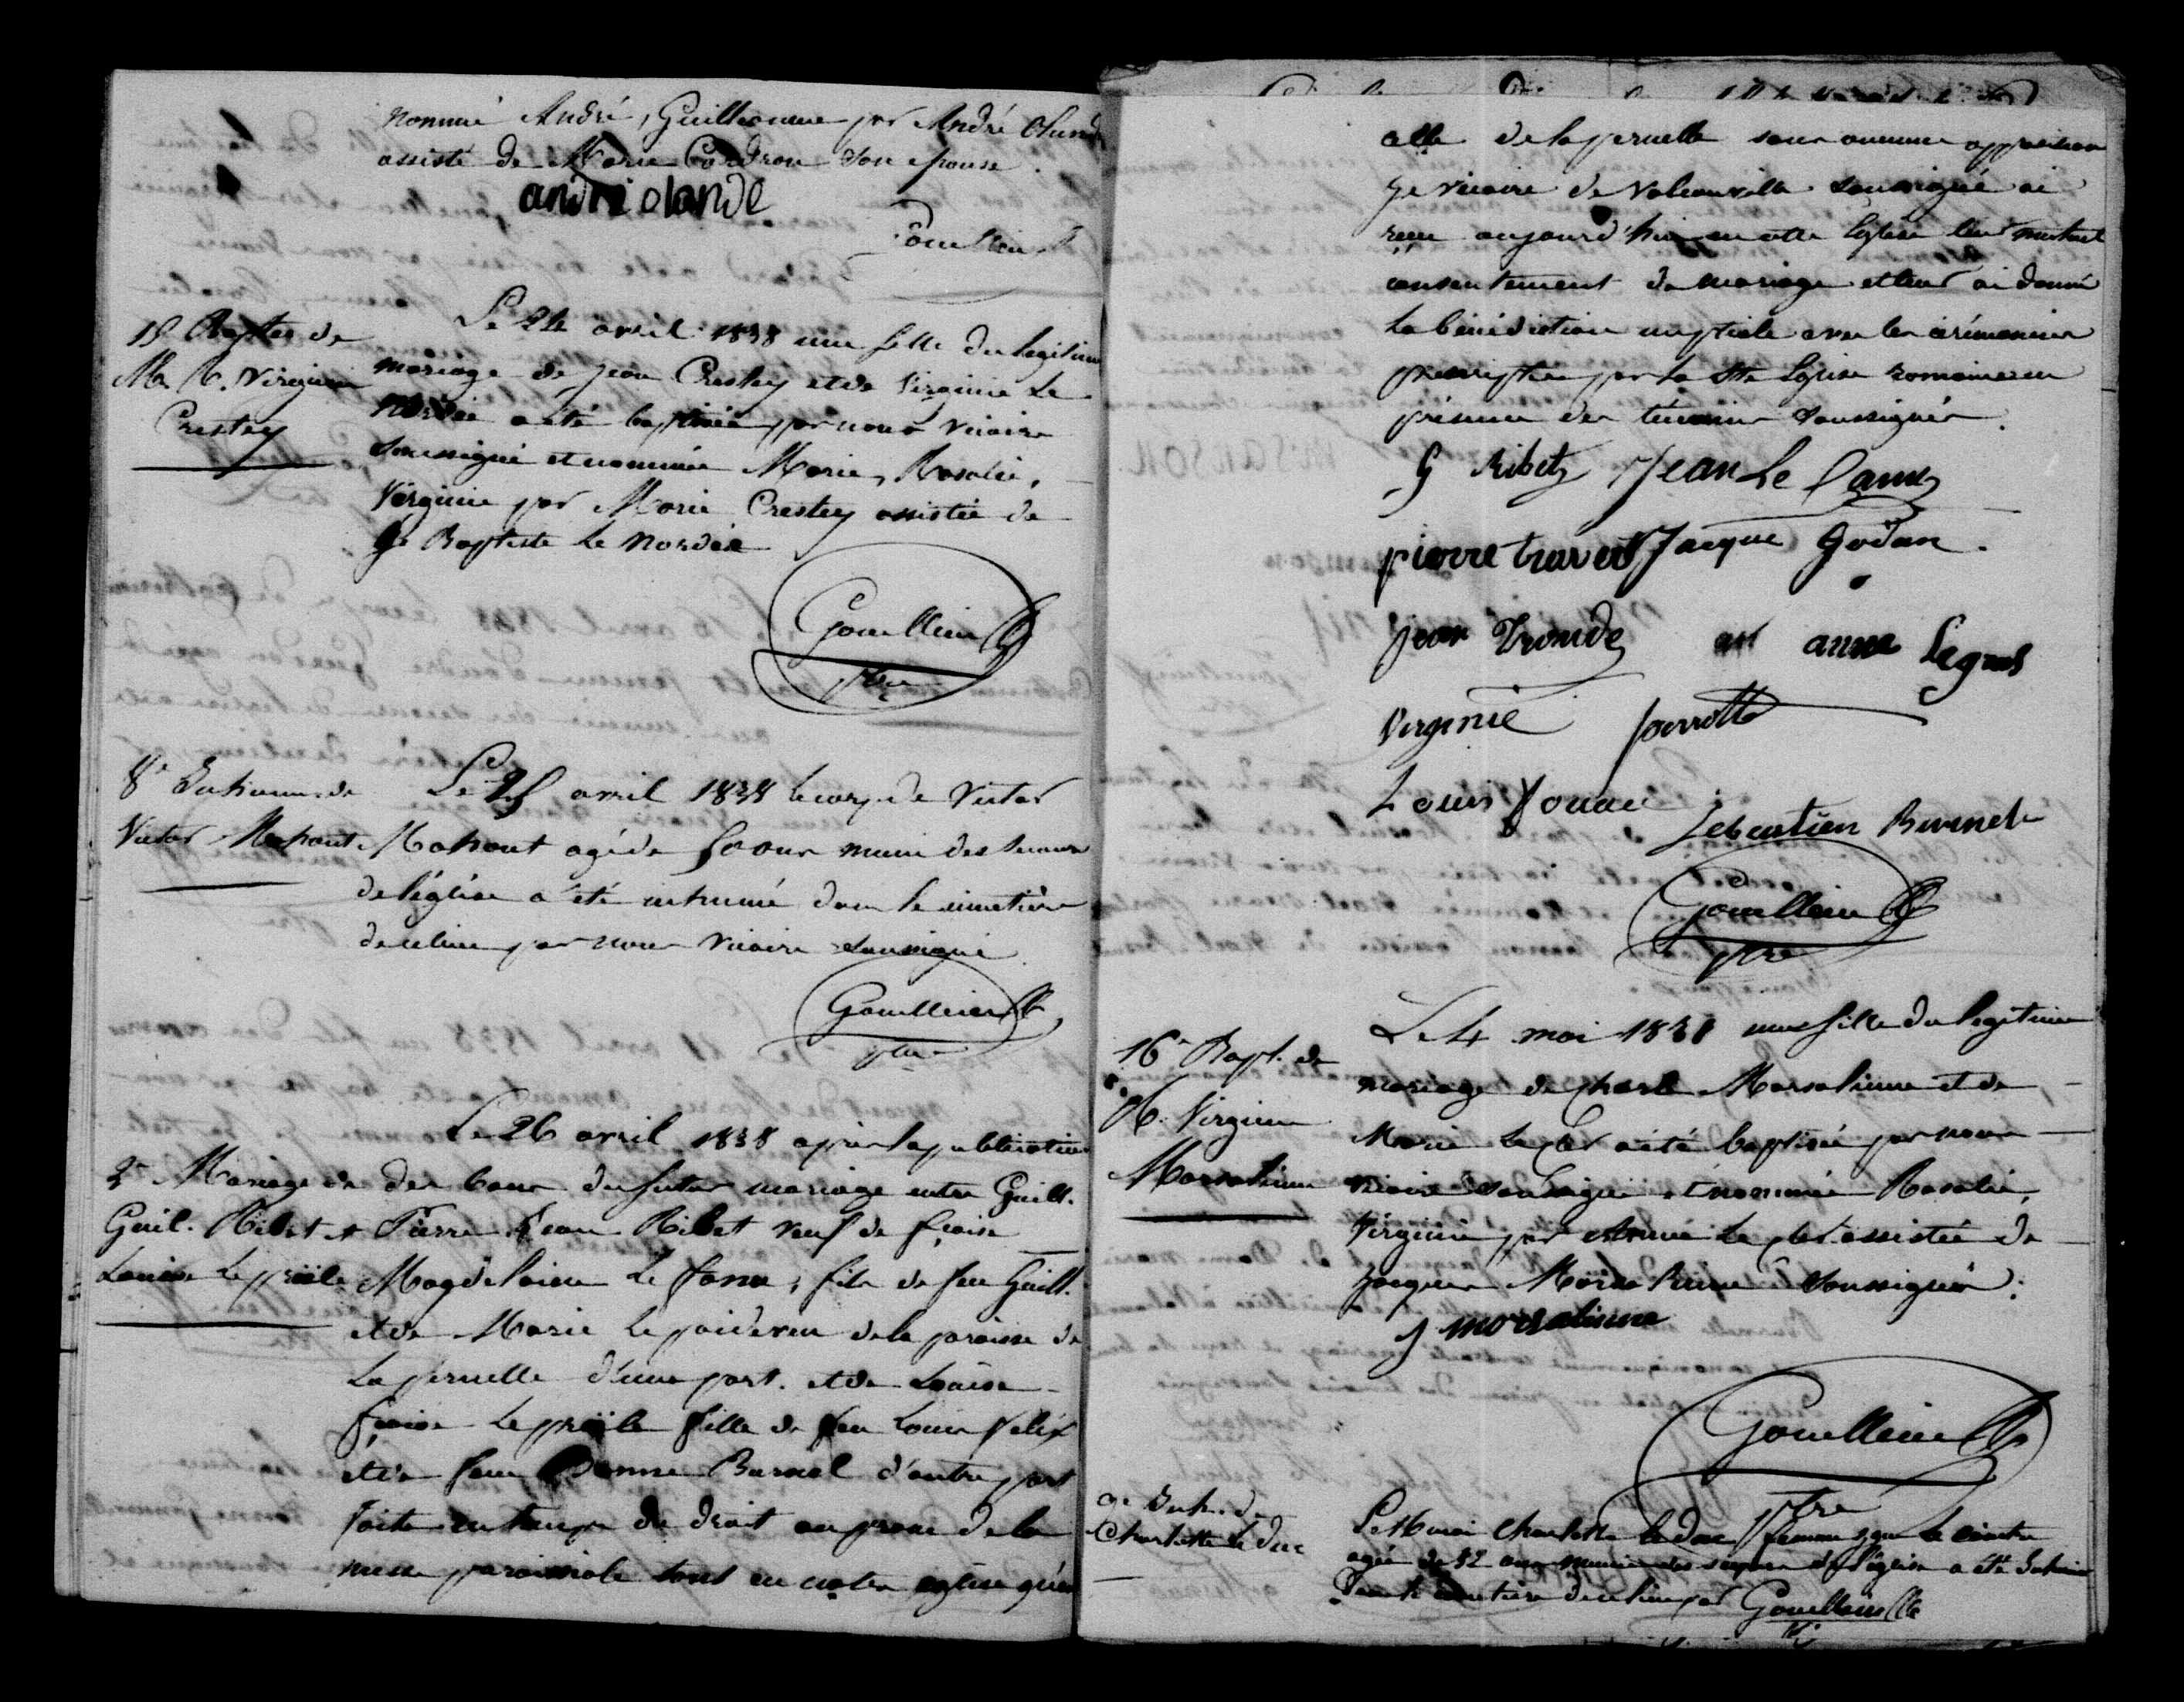 nommé André, Guillaume par André Olande
assisté de Marie Caudron son epouse.
andré olande
Gouellain
15 Baptes de
M. R. Virginie
Crestey
Le 24 avril 1838 une fille du legitime
mariage de jean Crestey et de Virginie Le
Nordée a été baptisée par nous vicaire
soussigné et nommée Marie, Rosalie,
Virginie par Marie Crestey assistée de
Baptiste Le Nordée
Gouellain
ptre
8e Inhum. de
Victor Mahaut
Le 25 avril 1838 le corps de Victor
Mahaut agé de ans muni des secours
de l'église a été inhumé dans le cimetière
de ce lieu par nous vicaire soussigné
Gouellain
ptre
Mariage de
Guil. Ribet et
Louise Le prêile
Le 26 avril 1838 après la publication
des bans du futur mariage entre Guill.
Pierre Jean Ribet veuf de fçoise
Magdelaine Le fanu, fils de feu Guill.
et de Marie Le poideven de la paroisse de
La pernelle d'une part. et de Louise
fçoise Le prêile fille de feu Louis felix
et de feue Bonne Burnel d'autre part
faite en temps de droit au prone de la
messe paroissiale tant en notre eglise qu'en
celle de la pernelle sans aucune opposition
je vicaire de Valcanville soussigné ai
reçu aujourd'hui en cette Eglise leur mutuel
consentement de mariage et leur ai donné
la bénédiction nuptiale avec les cérémonies
prescrites par la Ste Eglise romaine en
présence des témoins soussignés.
G Ribet Jean Le fanu
pierre travert Jacque Godan
jean Tronde anne Legros
Virginie perrotte
Louis Jouane
Sebastien Burnel
Gouellain
ptre
16e Bapt. de
R. Virginie
Marsalinne
Le 4 mai 1838 une fille du legitime
mariage de Charle Marsalinne et de
Marie Le a été baptisée par nous
vicaire soussigné et nommée Rosalie,
Virginie par Le assistée de
jacques Marsalinne soussignés.
J morsalinne
Gouellain
ptre
9e Inh. de
Charlotte Le duc
Le mai Charlotte le duc femme
agée de 52 ans munie des secours de l'église a été Inhumée
dans le cimetière de ce lieu par Gouellain